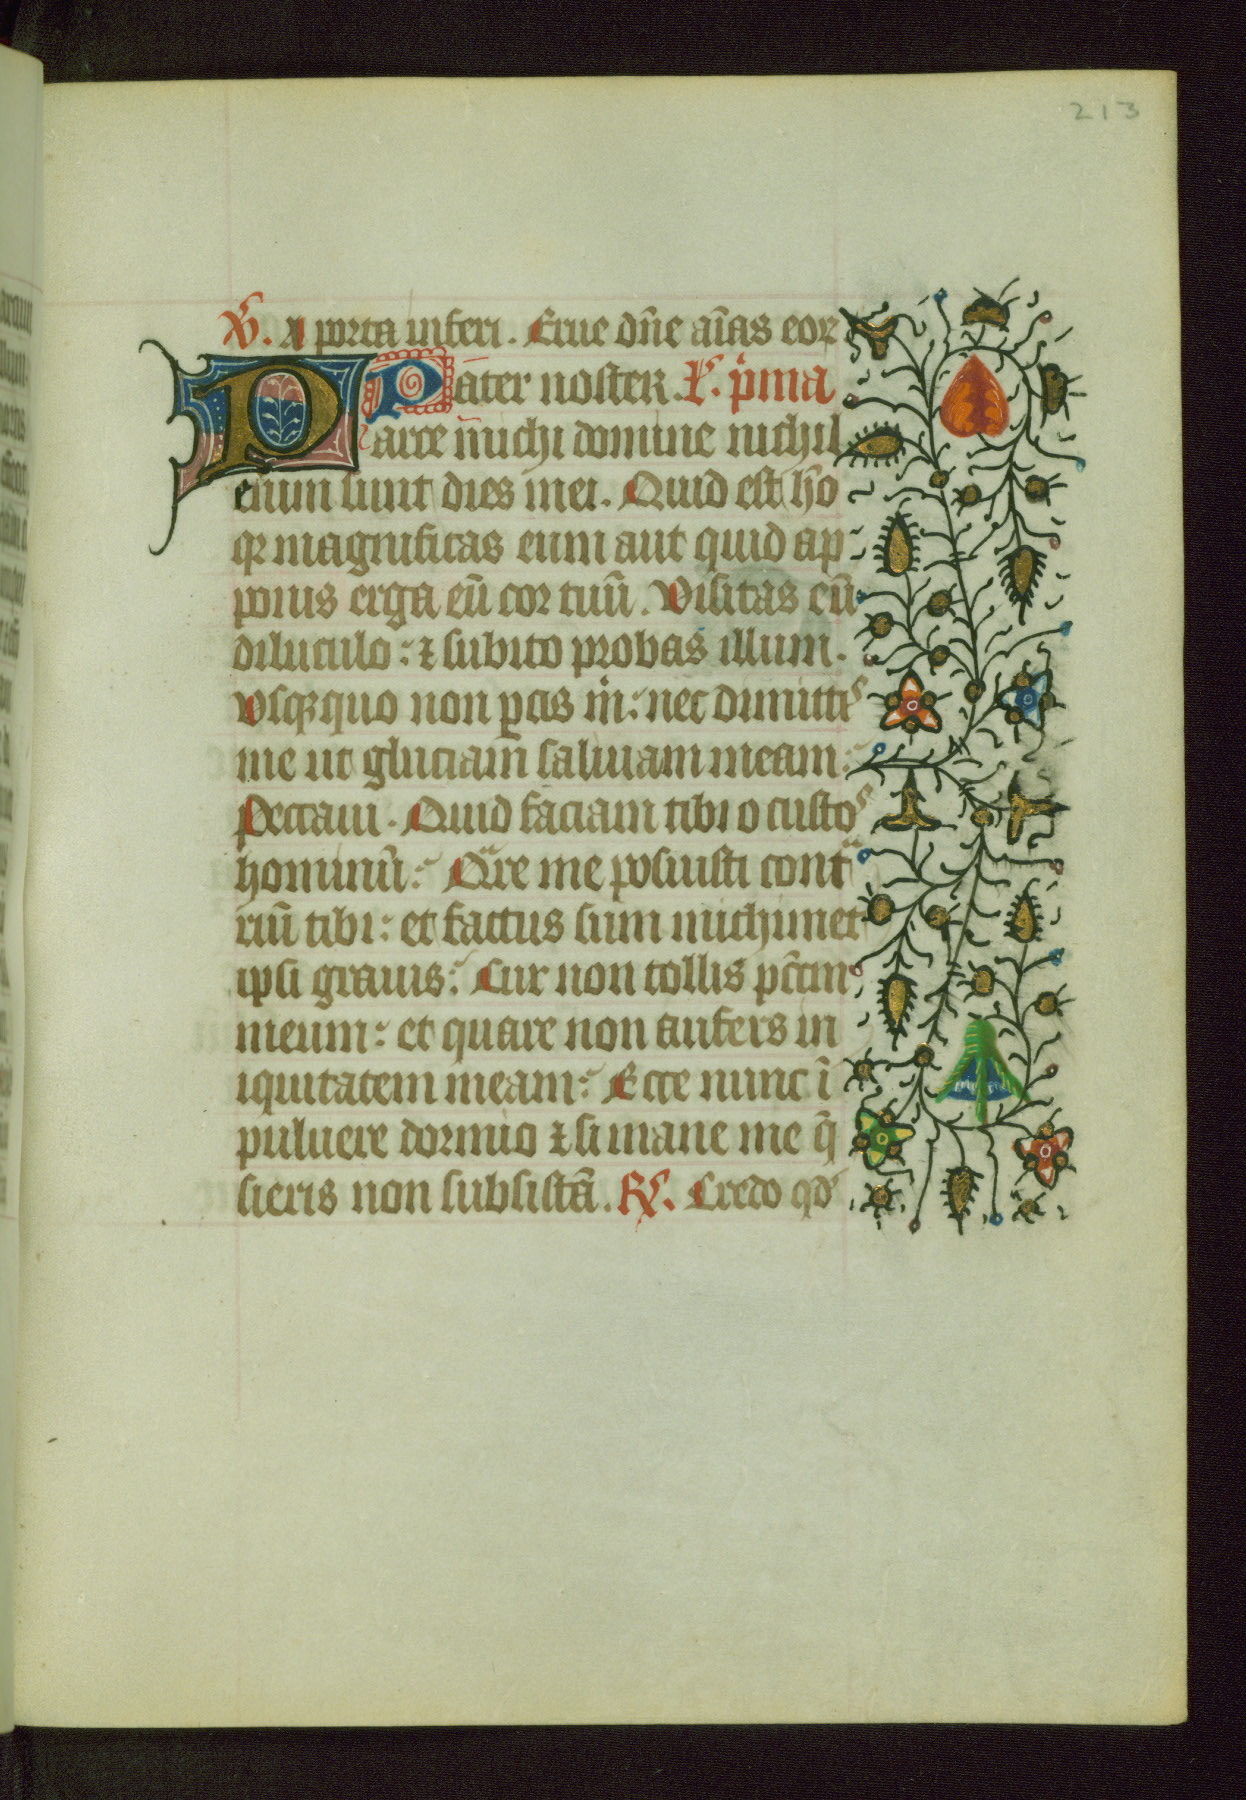 213
V̄. A porta inferi. Erue dn̄e aīas eoꝝ
Pater noster. L̄. p̄ma
Parce michi domine nichil
enim sunt dies mei. Quid est hō
qꝛ magnificas eum aut quid ap
ponis erga eū cor tuū. Visitas eū
diluculo: ⁊ subito probas illum.
Vsqꝫquo non ꝑcis m̄: nec dimittis
me ut gluciam saliuam meam:
Peccaui. Quid faciam tibi o custos
hominū: Qͣre me posuisti contͣ
riū tibi: et factus sum michimet
ipsi grauis: Cur non tollis pc̄cm
meum: et quare non aufers in
iquitatem meam: Ecce nunc ī
puluere dormio ⁊ si mane me q̄
sieris non subsistā. R̄. Credo qd̄